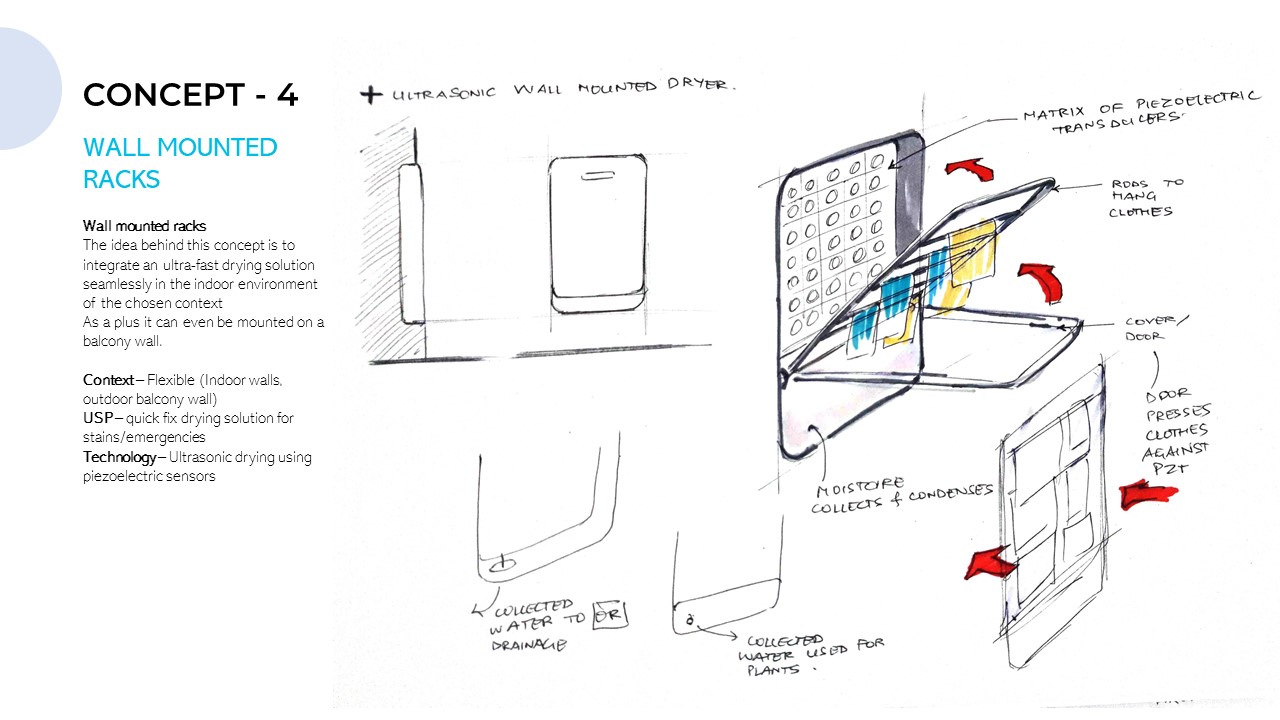 CONCEPT - 4
WALL MOUNTED
RACKS
Wall mounted racks
The idea behind this concept is to
integrate an ultra-fast drying solution
seamlessly in the indoor environment
of the chosen context
As a plus it can even be mounted on a
balcony wall.
Context – Flexible (Indoor walls,
outdoor balcony wall)
USP – quick fix drying solution for
stains/emergencies
Technology – Ultrasonic drying using
piezoelectric sensors
+ ULTRASONIC WALL MOUNTED DRYER.
MATRIX OF PIEZOELECTRIC
TRANSDUCERS.
RODS TO
HANG
CLOTHES
COVER/
DOOR
DOOR
PRESSES
CLOTHES
AGAINST
PZT
MOISTURE
COLLECTS & CONDENSES
COLLECTED
WATER TO OR
DRAINAGE
COLLECTED
WATER USED FOR
PLANTS.